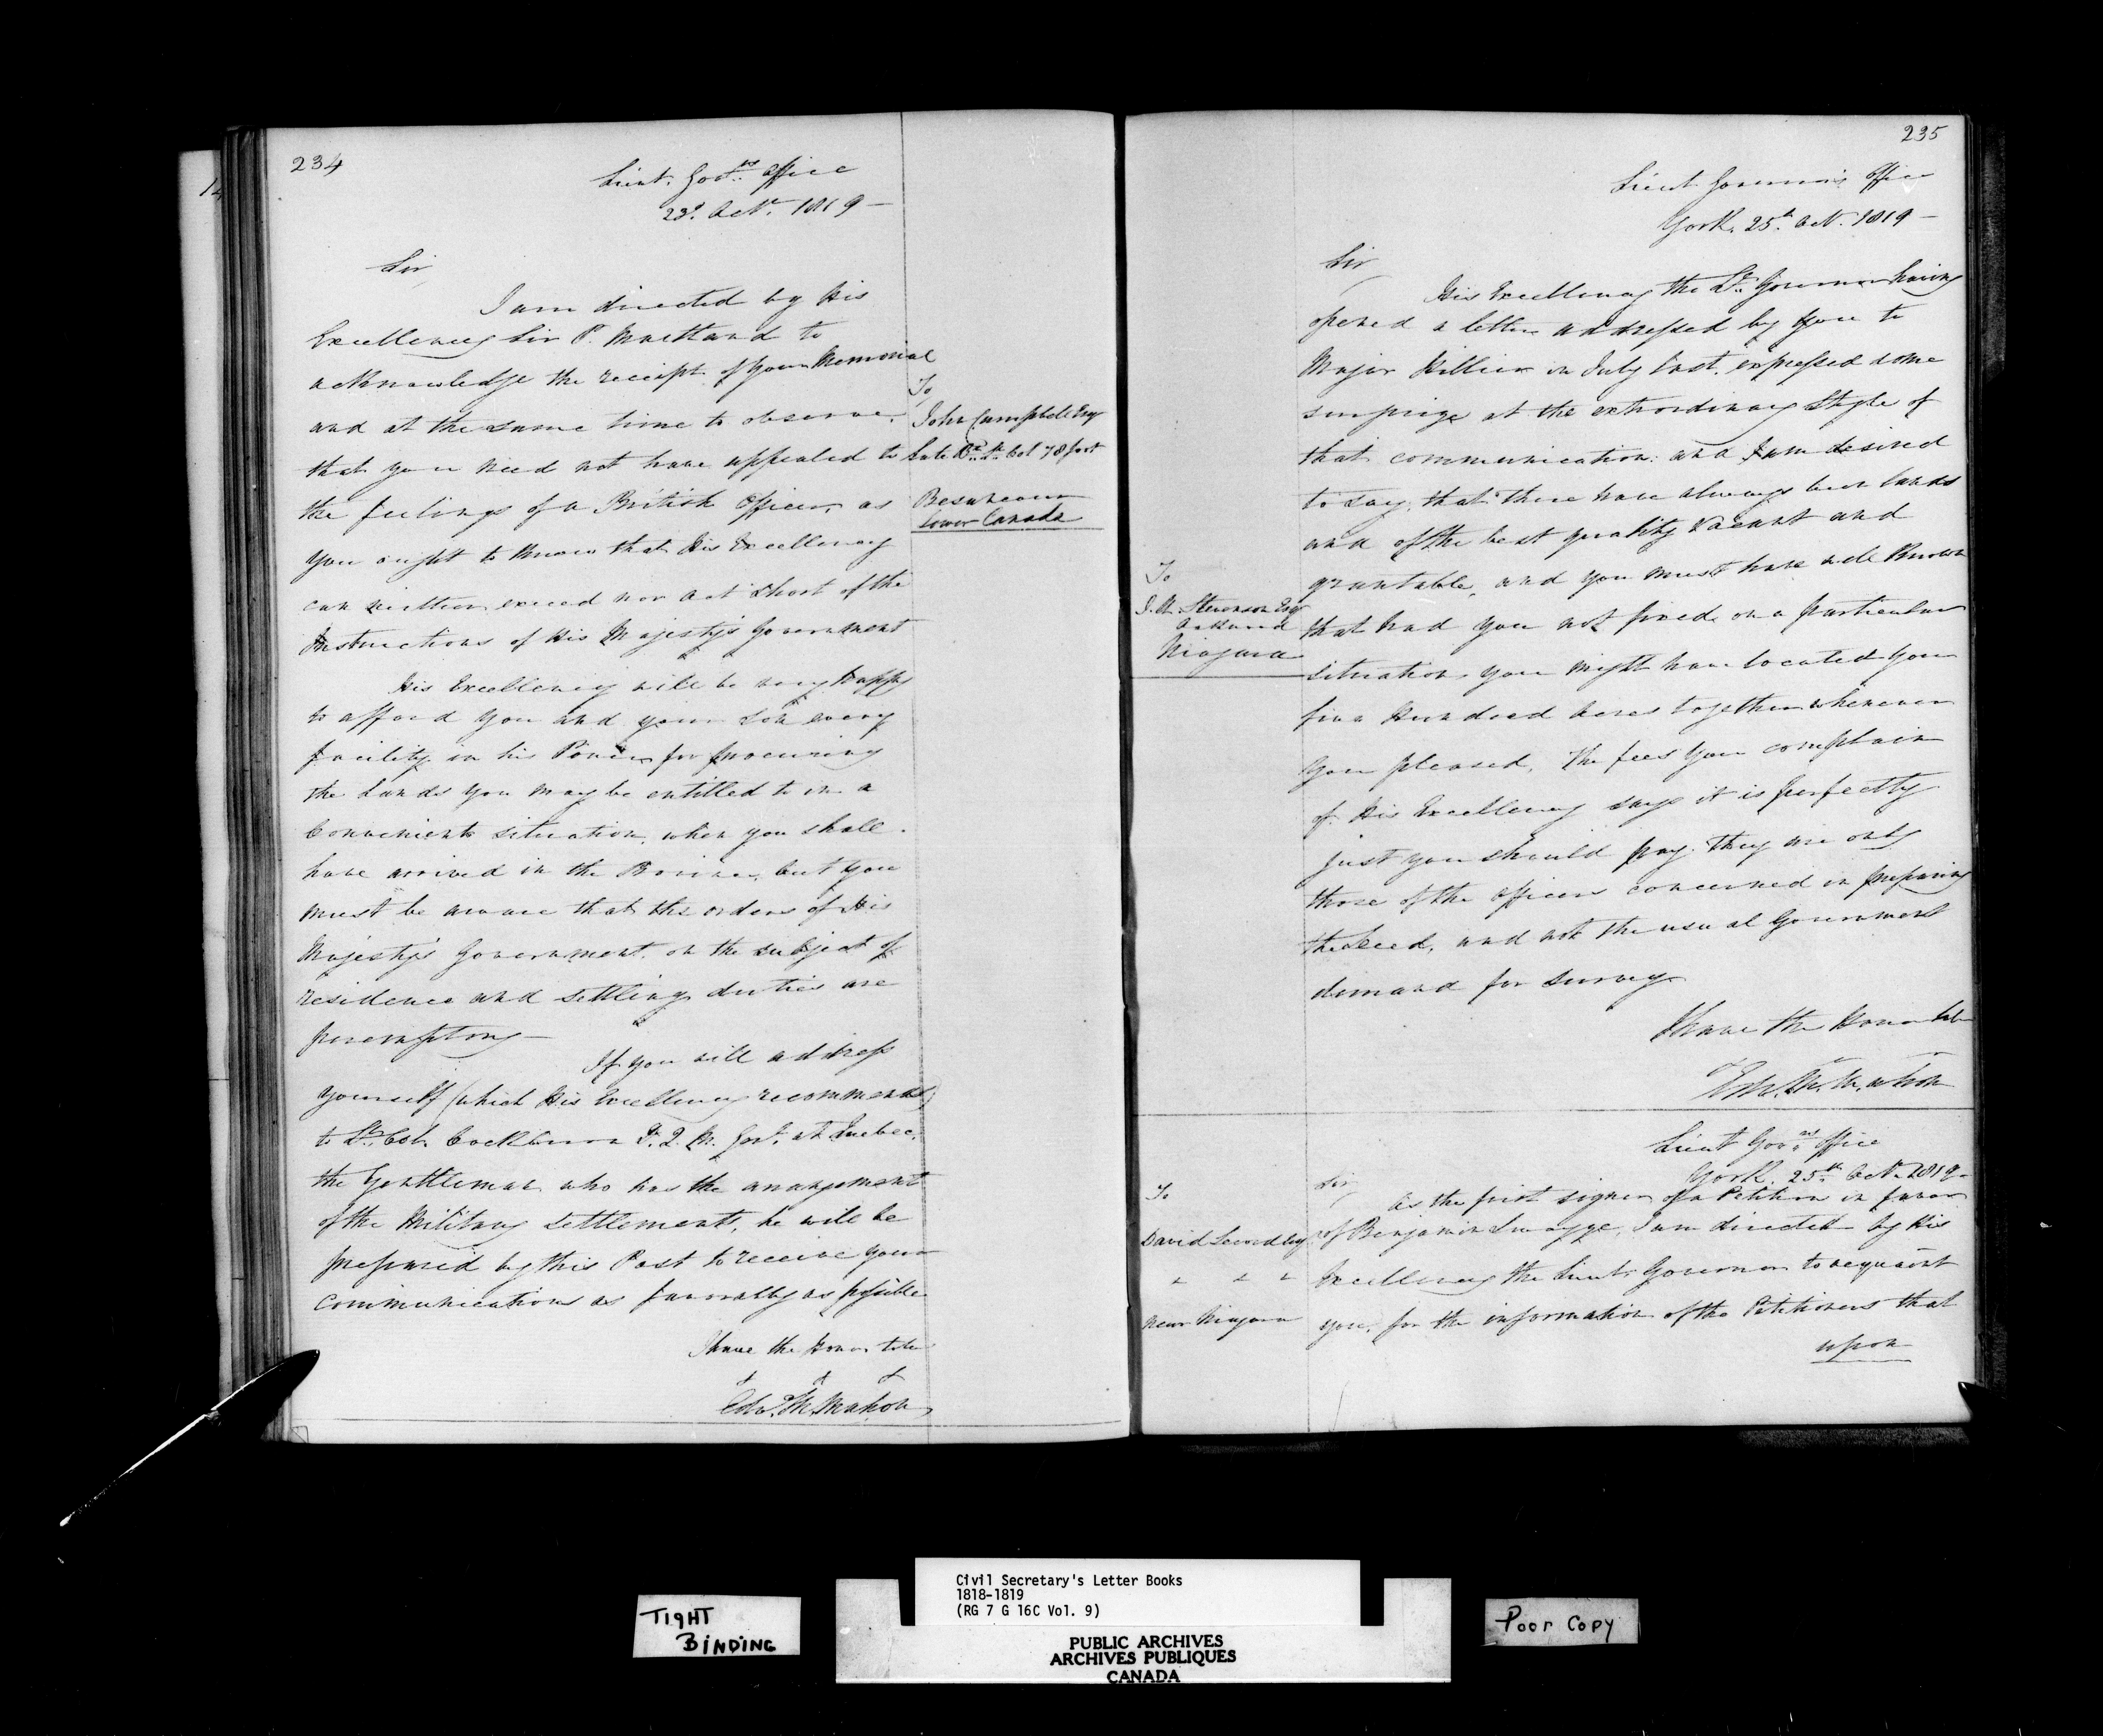 234
Lieut. Govrs. Office
23d. Octr. 1819 —
Sir
I am directed by His
Excellency Sir P. Maitland to
acknowledge the receipt of your Memorial
and at the same time to observe
that you need not have appealed to
the feelings of a British Officer, as
you ought to know that His Excellency
can neither exceed nor act short of the
Instructions of His Majesty's Government
His Excellency will be very happy
to afford you and your Son every
facility in his Power for procuring
the Lands you may be entitled to in a
Convenient situation, when you shall
have arrived in the Province, but you
must be aware that the orders of His
Majesty's Government on the subject of
residence and settling duties are
peremptory —
If you will address
yourself (which His Excellency recommends)
to Lt. Col. Cockburn D. Q. M. Genl. at Quebec,
the Gentleman who has the arrangement
of the Military Settlements, he will be
prepared by this Post to receive your
communications as favorably as possible
I have the Honor to be
Edw. McMahon
To
John Campbell Esqr
Late Bt. Lt. Col 78 foot
Lower Canada
235
Lieut Governor's Office
York, 25th. Oct. 1819 —
Sir
His Excellency the Lt. Governor having
opened a letter addressed by you to
Major Hillier in July last, expressed some
surprize at the extrordinary Style of
that communication: and I am desired
to say, that there have always been lands
and of the best quality vacant and
grantable, and you must have well known
that had you not fixed on a particular
situation, you might have located your
five Hundred acres together wherever
you pleased, The fees you complain
of His Excellency says it is perfectly
just you should pay. they are only
those of the officers concerned in preparing
the Deed, and not the usual Government
demand for Survey
I have the Honor to be
Edw. McMahon
To
Stevenson Esqr
Niagara
Lieut Govrs. Office
York, 25th Oct. 1819 —
Sir
As the first signer of a Petition in favor
of Benjamin Swayze, I am directed by His
Excellency the Lieut. Governor to acquaint
you, for the information of the Petitioners that
upon
To
David Secord Esq
near Niagara
TIGHT
BINDING
Civil Secretary's Letter Books
1818-1819
(RG 7 G 16C Vol. 9)
PUBLIC ARCHIVES
ARCHIVES PUBLIQUES
CANADA
Poor Copy